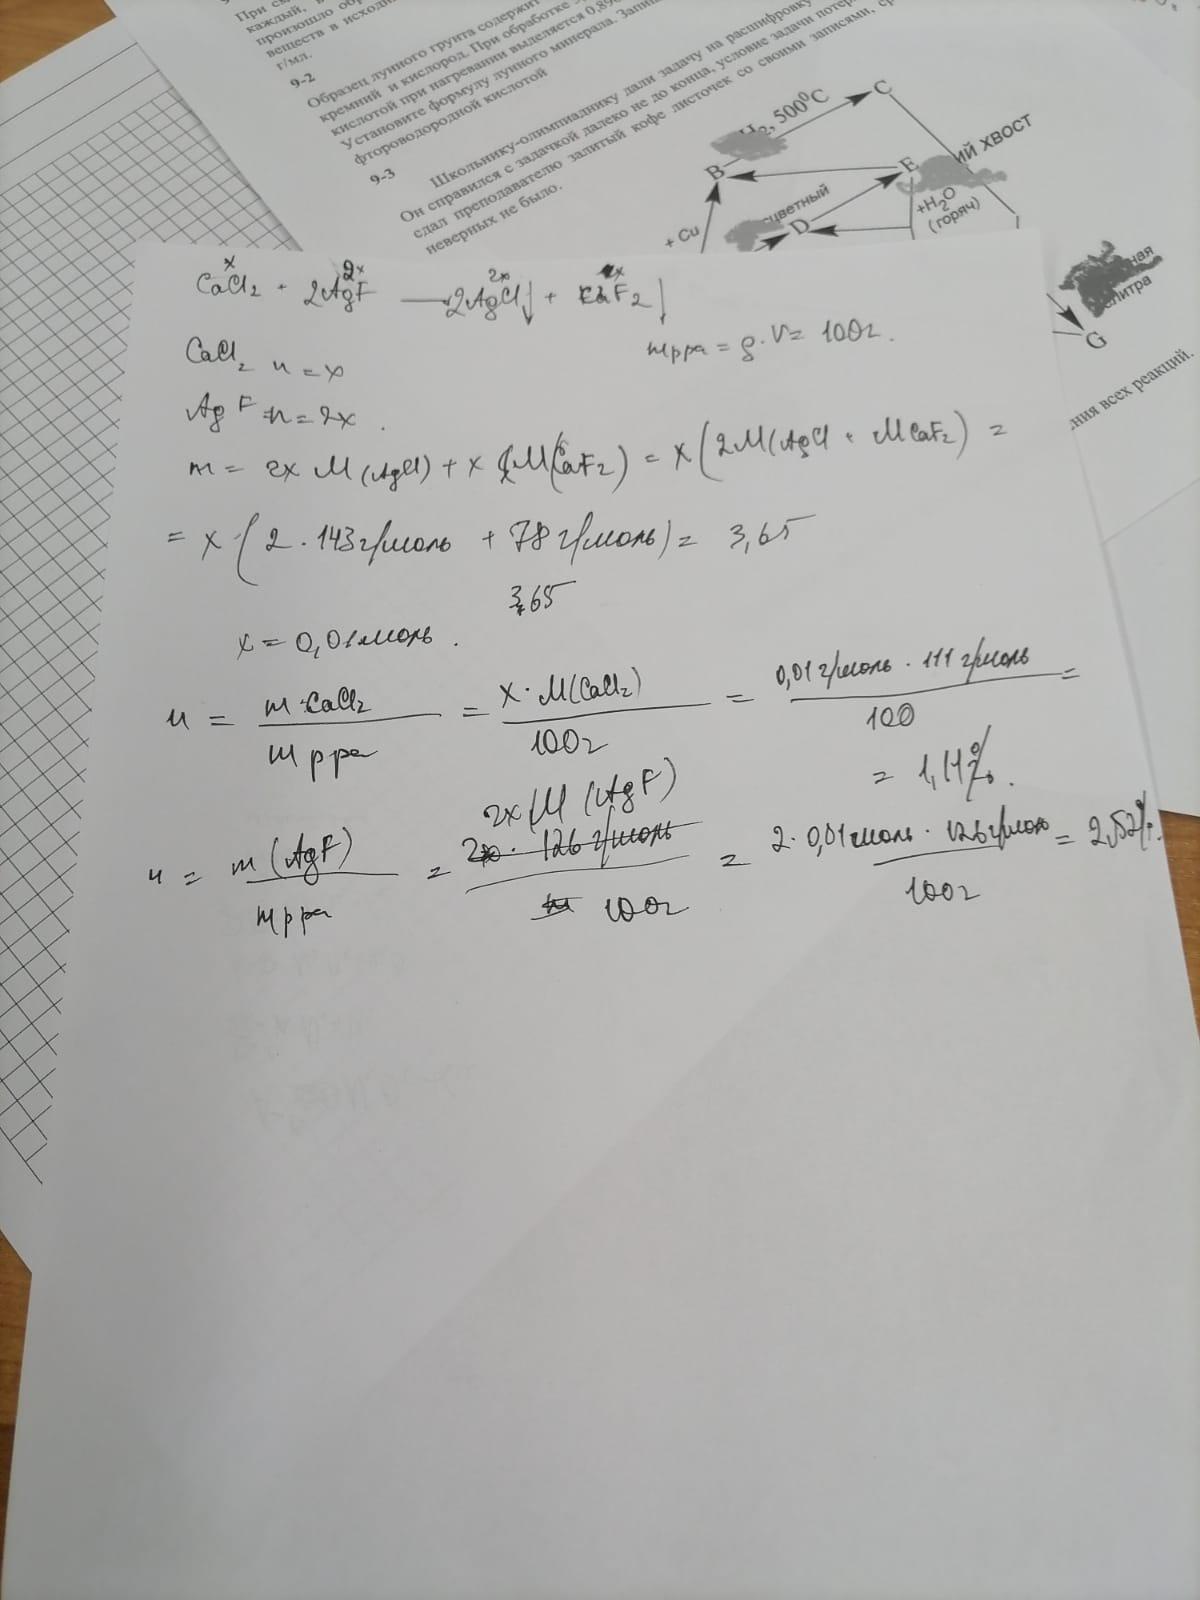 При
каждый,
произошло
веществ в исходн
г/мл.
9-2
Образец лунного грунта содержит
кремний и кислород. При обработке
кислотой при нагревании выделяется
Установите формулу лунного минерала.
фтороводородной кислотой
9-3
Школьнику-олимпиаднику дали задачу на расшифровку
Он справился с задачкой далеко не до конца, условие задачи
сдал преподавателю залитый кофе листочек со своими записями,
неверных не было.
B
, 500⁰C
C
E
ИЙ ХВОСТ
цветный
D
+H₂O
(горяч)
+ Cu
ная
G
ния всех реакций.
x 2x 2x x
CaCl₂ + 2AgF → 2AgCl↓ + CaF₂↓
CaCl₂ n = x
m р ра = ρ · V = 100г.
AgF n = 2x.
m = 2x M(AgCl) + x M(CaF₂) = x (2M(AgCl + MCaF₂) =
= x (2 · 143 г/моль + 78 г/моль) = 3,65
3,65
x = 0,01 моль.
ч = m CaCl₂ / m р ра = x · M(CaCl₂) / 100г = 0,01 г/моль · 111 г/моль / 100 =
= 1,11%.
2x M (AgF)
ч = m (AgF) / m р ра = 2x · 126 г/моль / 100г = 2 · 0,01 моль · 126 г/моль / 100г = 2,52%.